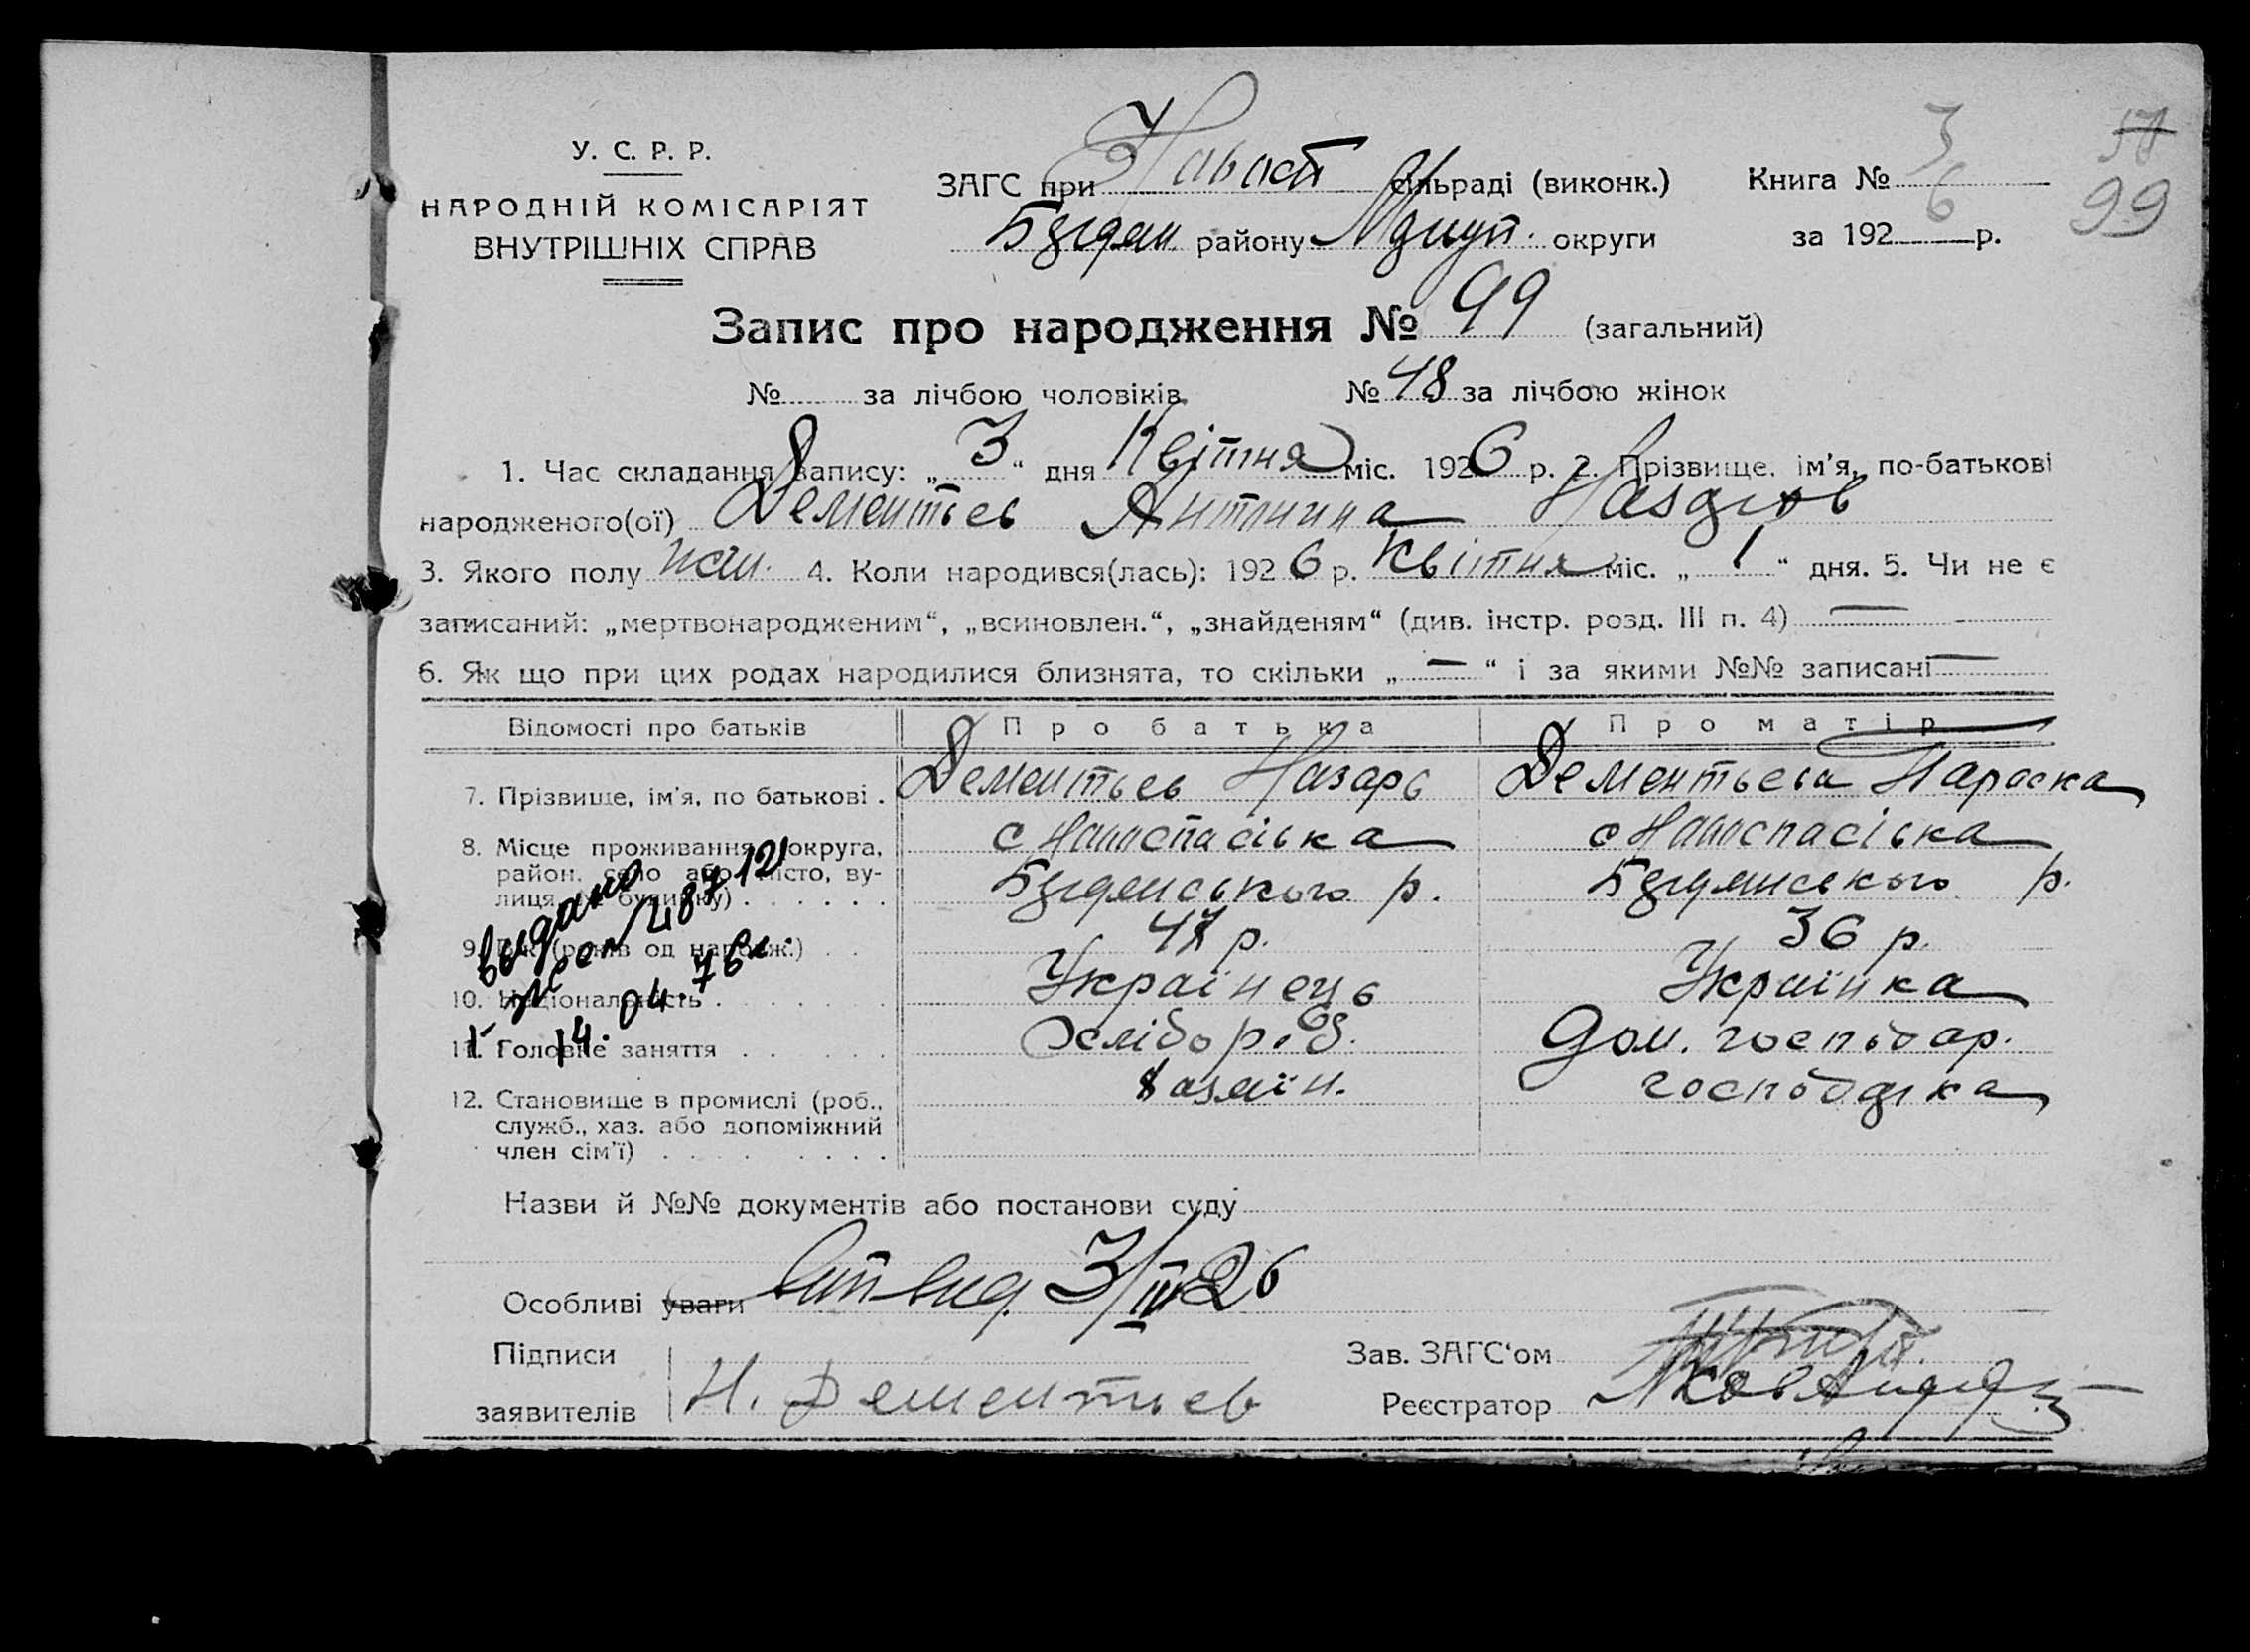 У. С. Р. Р.
НАРОДНІЙ КОМІСАРІЯТ
ВНУТРІШНІХ СПРАВ
ЗАГС при сільраді (виконк.)
району округи
Книга № 3
за 192 6 р.
57
99
Запис про народження № 99 (загальний)
№ за лічбою чоловіків № 48 за лічбою жінок
1. Час складання запису: „ 3 “ дня Квітня міс. 1926 р. 2. Прізвище, ім’я, по-батькові
народженого(ої) Дементьев Антонина
3. Якого полу жін. 4. Коли народився(лась): 1926 р. Квітня міс. „ 1 “ дня. 5. Чи не є
записаний: „мертвонародженим“, „всиновлен.“, „знайденям“ (див. інстр. розд. III п. 4) —
6. Як що при цих родах народилися близнята, то скільки „ — “ і за якими №№ записані —
Відомості про батьків Про батька Про матір
7. Прізвище, ім’я, по батькові . Дементьев Назарь Дементьева Параска
8. Місце проживання (округа,
район, село або місто, ву-
лиця, № будинку) . . . . . .
с р.
с р.
9. Вік (років од народж.) . . 36 р.
10. Національність . . . . . . . Українець Українка
11. Головне заняття . . . . . Хлібороб. Дом. господар.
12. Становище в промислі (роб.,
служб., хаз. або допоміжний
член сім’ї) . . . . . . . .
хазяїн. господарка
выдано
14.04.76г.
Назви й №№ документів або постанови суду
Особливі уваги 3/IV 26
Підписи
заявителів
Н. Дементьев
Зав. ЗАГС‘ом
Реєстратор